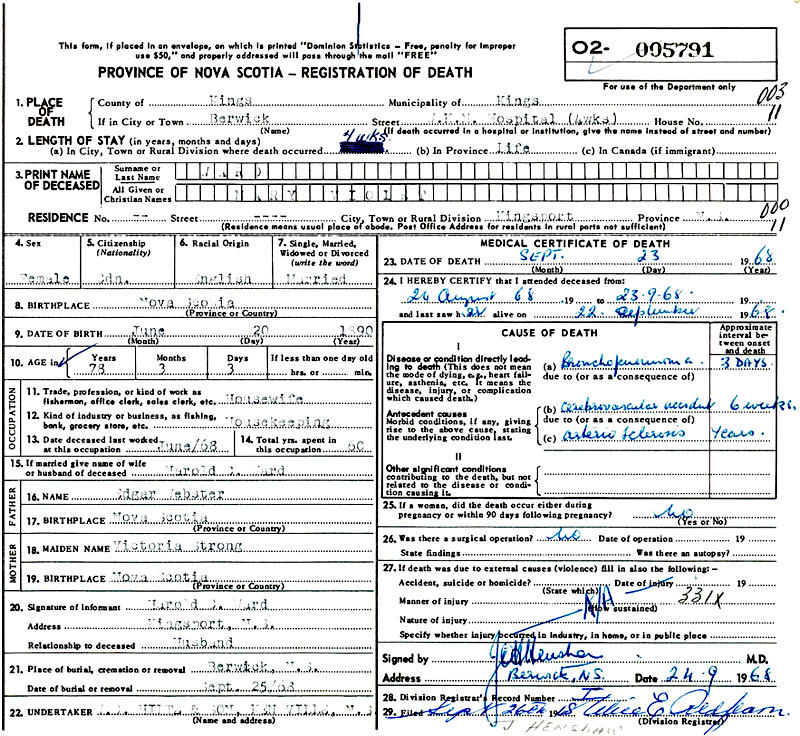 This form, if placed in an envelope, on which is printed "Dominion Statistics – Free, penalty for improper
use $50," and properly addressed will pass through the mail "FREE"
PROVINCE OF NOVA SCOTIA – REGISTRATION OF DEATH
O2- 005791
For use of the Department only
003
11
1. PLACE OF DEATH
County of Kings Municipality of Kings
If in City or Town Berwick Street Hospital (4wks) House No.
(Name) (If death occurred in a hospital or institution, give the name instead of street and number)
2. LENGTH OF STAY (in years, months and days)
(a) In City, Town or Rural Division where death occurred 4 wks (b) In Province Life (c) In Canada (if immigrant)
3. PRINT NAME OF DECEASED
Surname or Last Name WARD
All Given or Christian Names MARY VIOLET
RESIDENCE No. -- Street ---- City, Town or Rural Division Kingsport Province N.S.
(Residence means usual place of abode. Post Office Address for residents in rural ports not sufficient)
000
11
4. Sex
Female
5. Citizenship
(Nationality)
Cdn.
6. Racial Origin
English
7. Single, Married, Widowed or Divorced
(write the word)
Married
8. BIRTHPLACE Nova Scotia
(Province or Country)
9. DATE OF BIRTH June 20 1890
(Month) (Day) (Year)
10. AGE in
Years Months Days If less than one day old
78 3 3 hrs. or min.
OCCUPATION
11. Trade, profession, or kind of work as fisherman, office clerk, sales clerk, etc. Housewife
12. Kind of industry or business, as fishing, bank, grocery store, etc. Housekeeping
13. Date deceased last worked at this occupation June/68
14. Total yrs. spent in this occupation 60
15. If married give name of wife or husband of deceased Harold Ward
FATHER
16. NAME Edgar Webster
17. BIRTHPLACE Nova Scotia
(Province or Country)
MOTHER
18. MAIDEN NAME Victoria Strong
19. BIRTHPLACE Nova Scotia
(Province or Country)
20. Signature of informant Harold Ward
Address Kingsport, N.S.
Relationship to deceased Husband
21. Place of burial, cremation or removal Berwick, N.S.
Date of burial or removal Sept. 25/68
22. UNDERTAKER HILTZ & SON, KENTVILLE, N.S.
(Name and address)
MEDICAL CERTIFICATE OF DEATH
23. DATE OF DEATH SEPT. 23 1968
(Month) (Day) (Year)
24. I HEREBY CERTIFY that I attended deceased from:
24 August 68 19 to 23.9.68. 19
and last saw her alive on 22 September 1968.
CAUSE OF DEATH
Approximate interval between onset and death
I
Disease or condition directly leading to death (This does not mean the mode of dying, e.g., heart failure, asthenia, etc. It means the disease, injury, or complication which caused death.)
(a) Bronchopneumonia 3 DAYS
due to (or as a consequence of)
Antecedent causes
Morbid conditions, if any, giving rise to the above cause, stating the underlying condition last.
(b) cerebrovascular accident 6 weeks.
due to (or as a consequence of)
(c) arterio sclerosis Years.
II
Other significant conditions contributing to the death, but not related to the disease or condition causing it.
25. If a woman, did the death occur either during pregnancy or within 90 days following pregnancy? No
(Yes or No)
26. Was there a surgical operation? No Date of operation 19
State findings Was there an autopsy?
27. If death was due to external causes (violence) fill in also the following:–
Accident, suicide or homicide? Date of injury 19
(State which)
Manner of injury N/A 331X
(How sustained)
Nature of injury
Specify whether injury occurred in industry, in home, or in public place
Signed by Henshaw M.D.
Address Berwick, N.S. Date 24.9 1968
28. Division Registrar's Record Number
29. Filed Sept 26th 1968 E. Redfearn
J HENSHAW (Division Registrar)